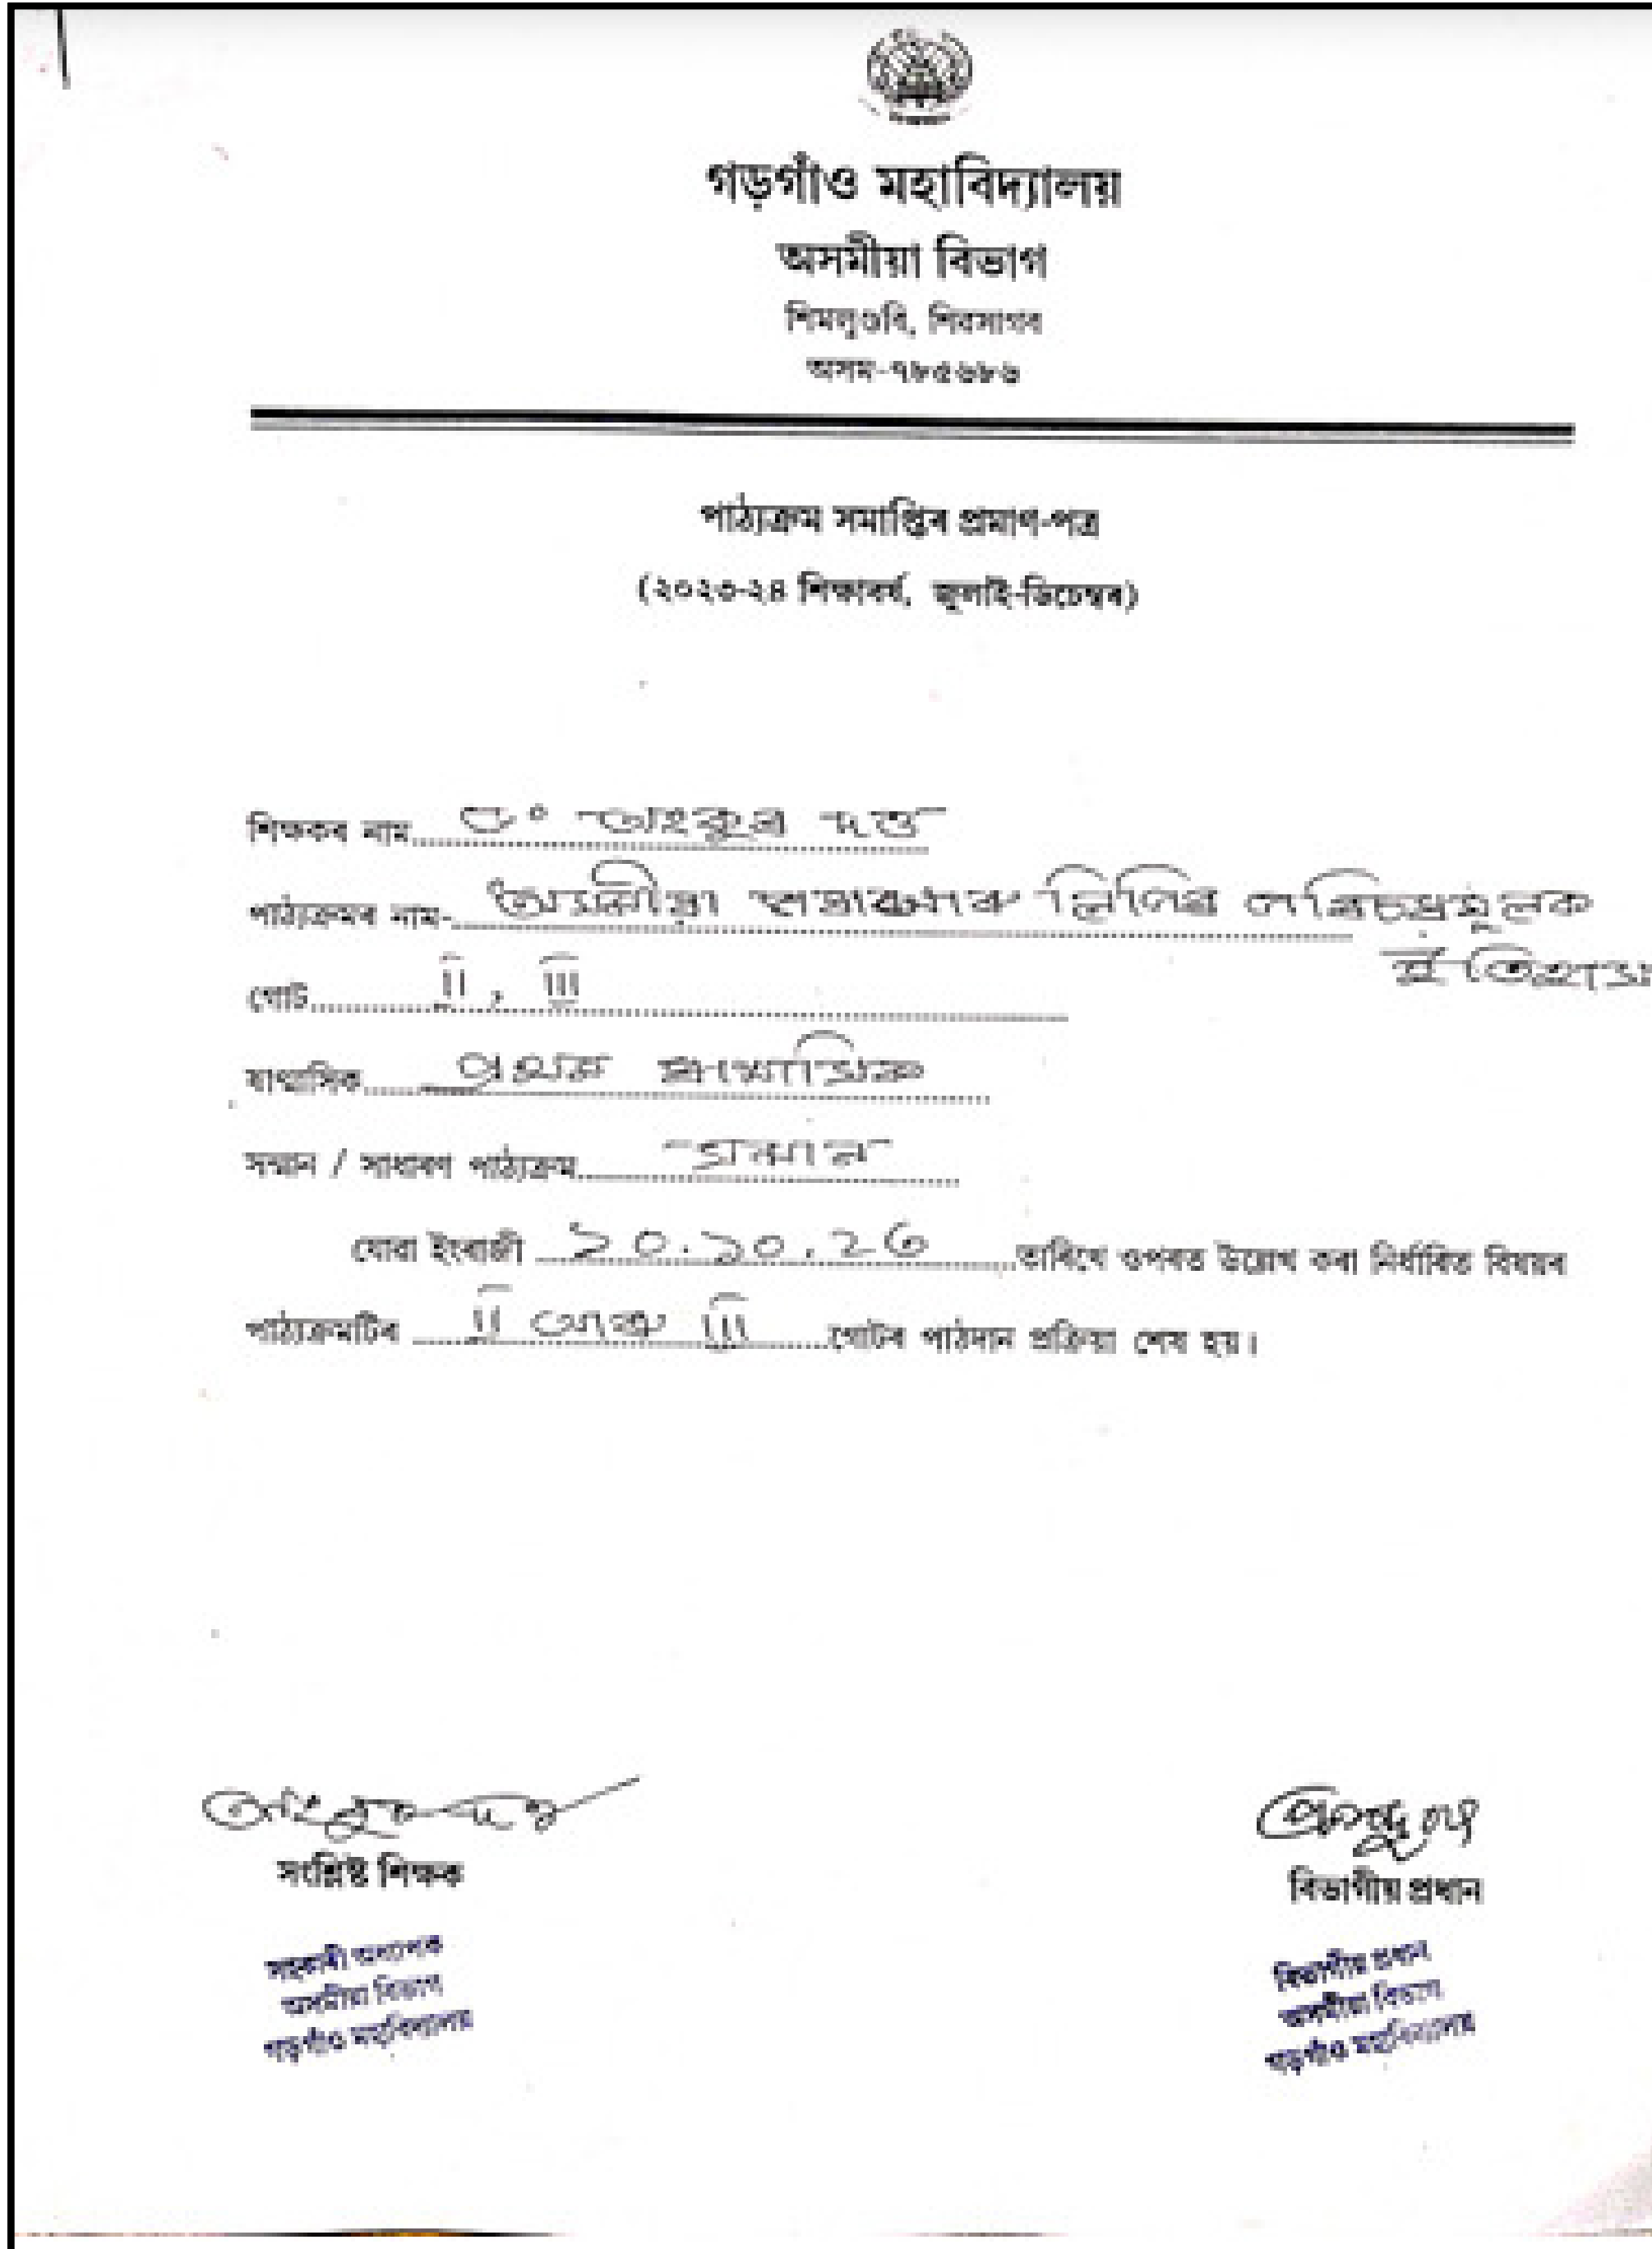 গড়গাঁও মহাবিদ্যালয়
অসমীয়া বিভাগ
শিমলুগুৰি, শিৱসাগৰ
অসম-৭৮৫৬৮৬
পাঠ্যক্ৰম সমাপ্তিৰ প্ৰমাণ-পত্ৰ
(২০২৩-২৪ শিক্ষাবৰ্ষ, জুলাই-ডিচেম্বৰ)
শিক্ষকৰ নাম ড° অংকুৰ দত্ত
পাঠ্যক্ৰমৰ নাম- অসমীয়া লিপিৰ পৰিচয়মূলক
ইতিহাস
গোট II, III
ষাণ্মাসিক প্ৰথম ষাণ্মাসিক
সন্মান / সাধাৰণ পাঠ্যক্ৰম সন্মান
যোৱা ইংৰাজী ১০.১০.২৩ তাৰিখে ওপৰত উল্লেখ কৰা নিৰ্ধাৰিত বিষয়ৰ
পাঠ্যক্ৰমটিৰ II আৰু III গোটৰ পাঠদান প্ৰক্ৰিয়া শেষ হয়।
অংকুৰ দত্ত
সংশ্লিষ্ট শিক্ষক
বিভাগীয় প্ৰধান
সহকাৰী অধ্যাপক
অসমীয়া বিভাগ
গড়গাঁও মহাবিদ্যালয়
বিভাগীয় প্ৰধান
অসমীয়া বিভাগ
গড়গাঁও মহাবিদ্যালয়